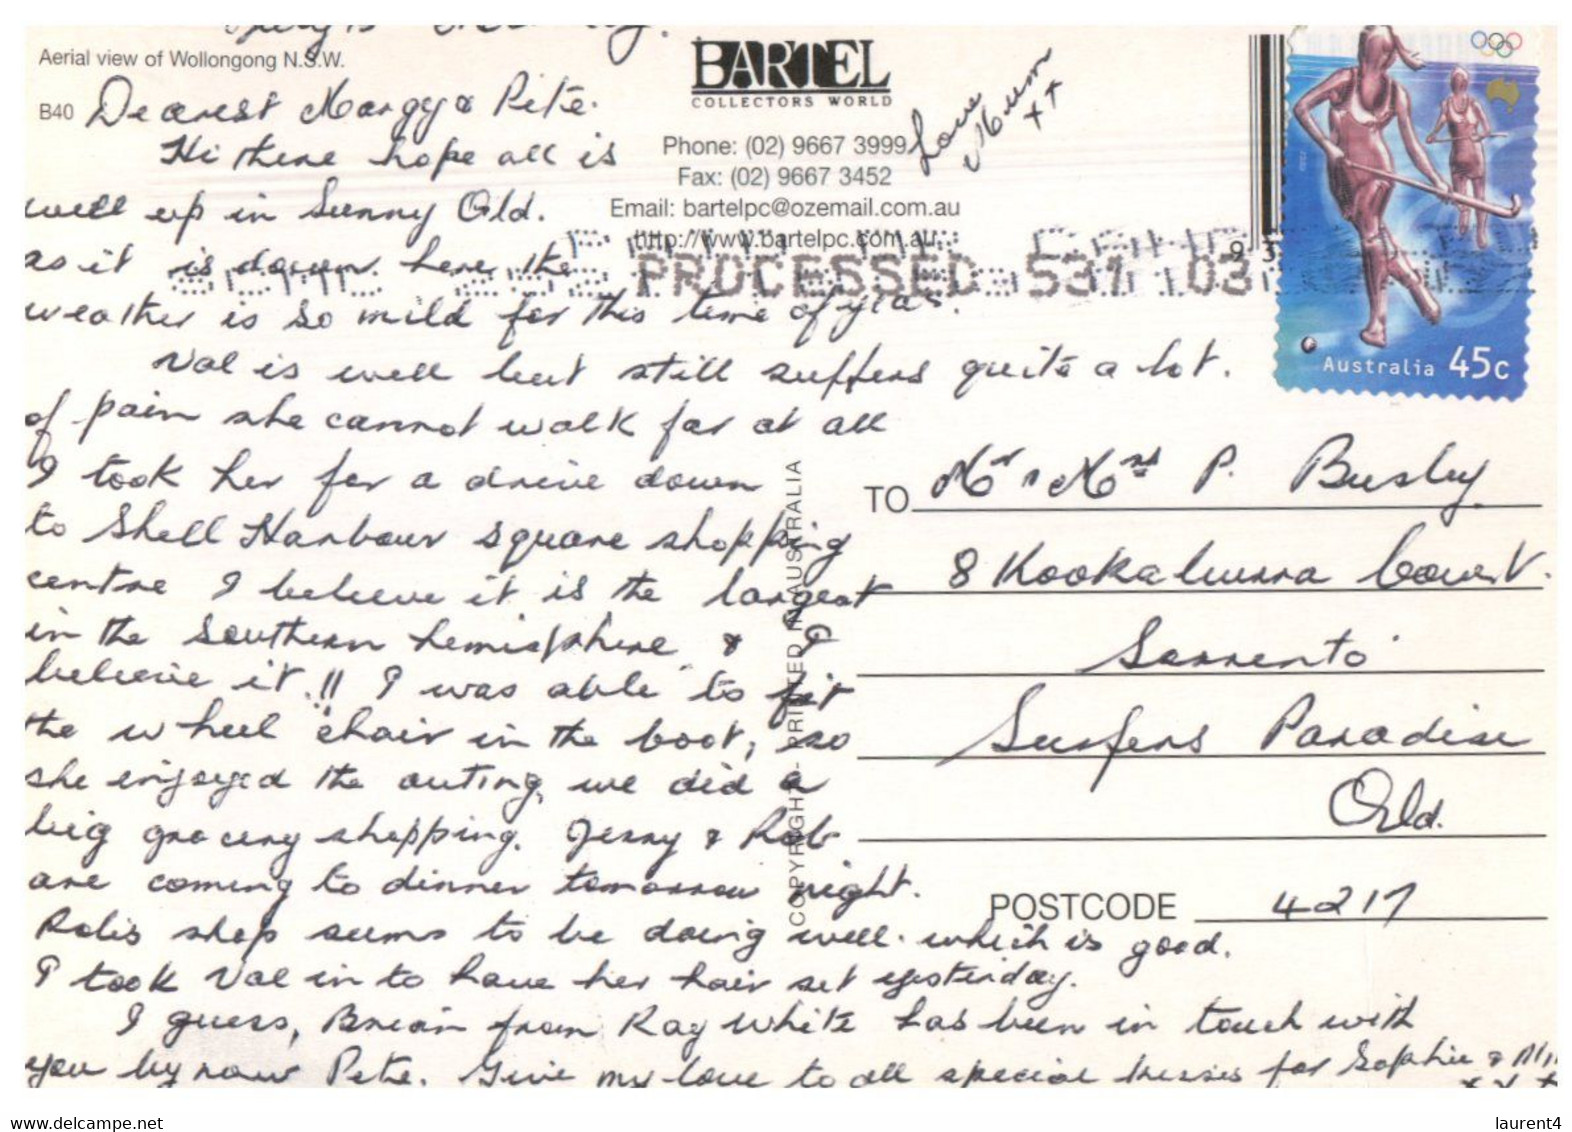 Aerial view of Wollongong N.S.W.
B40
BARTEL
COLLECTORS WORLD
Phone: (02) 9667 3999
Fax: (02) 9667 3452
Email: bartelpc@ozemail.com.au
http://www.bartelpc.com.au
Love
Mum
x x
Australia 45c
PROCESSED 531 03
93
Dearest Margy & Pete.
Hi there hope all is
well up in Sunny Qld.
as it is down here the
weather is so mild for this time of year.
Val is well but still suffers quite a lot.
of pain she cannot walk far at all
I took her for a drive down
to Shell Harbour square shopping
centre I believe it is the largest
in the Southern hemisphere & I
believe it!! I was able to fit
the wheel chair in the boot, so
she enjoyed the outing, we did a
big grocery shopping. Jenny & Rob
are coming to dinner tomorrow night.
Rob's shop seems to be doing well. which is good.
I took Val in to have her hair set yesterday.
I guess, Brian from Ray White has been in touch with
you by now Pete. Give my love to all special kisses for Sophie &
x x x
COPYRIGHT - PRINTED IN AUSTRALIA
TO Mr & Mrs P. Busby
8 Kookaburra Court.
Sorrento
Surfers Paradise
Qld.
POSTCODE 4217
laurent4
delcampe.net